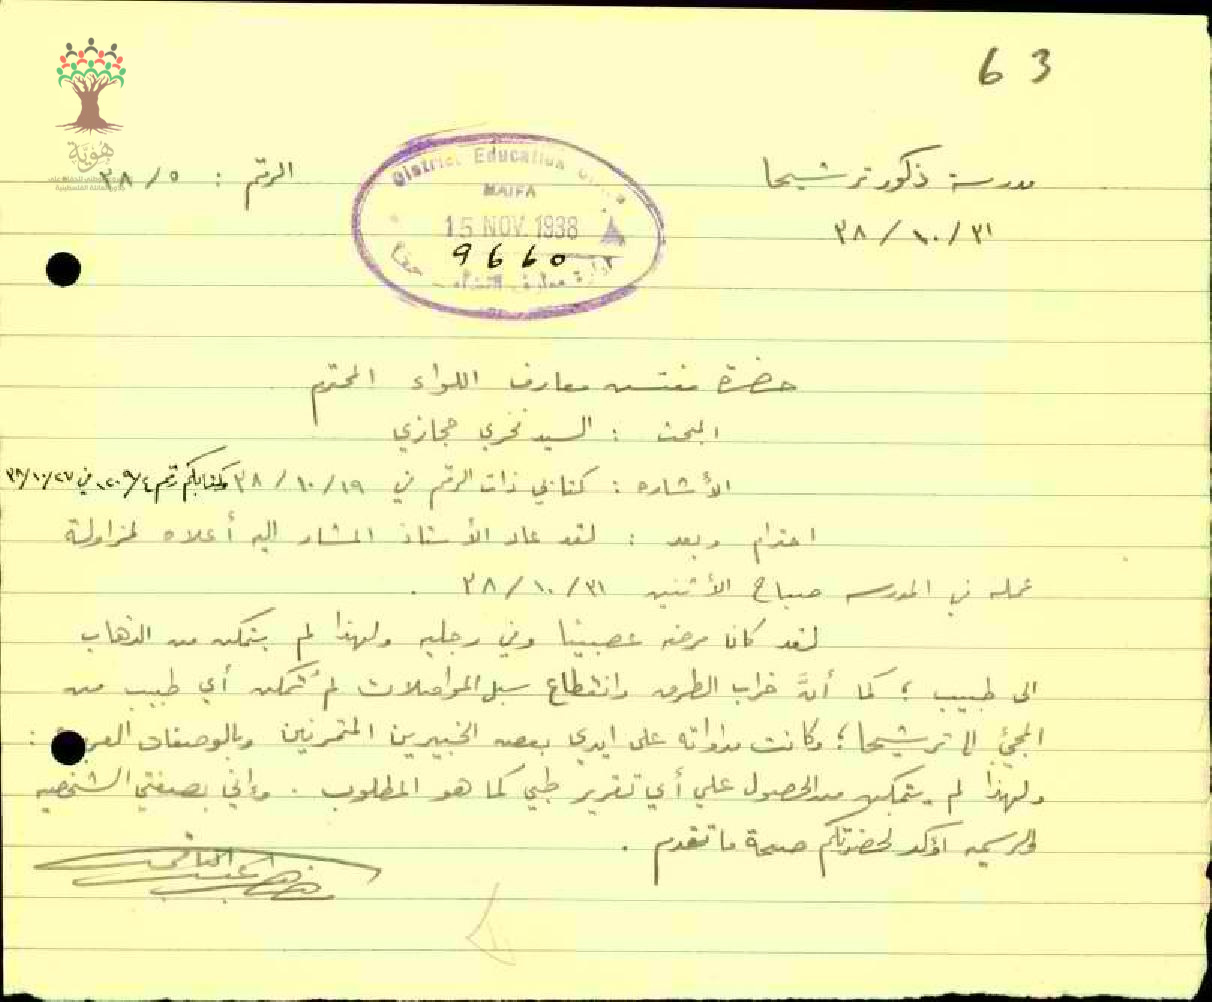 63
مدرسة ذكور ترشيحا
الرقم : ٣٨/٥
٣٨/١٠/٣١
District Education Office
HAIFA
15 NOV. 1938
9660
ادارة معارف اللواء حيفا
هُوِيَّة
حضرة مفتش معارف اللواء المحترم
البحث : السيد فخري حجازي
الأشاره : كتابي ذات الرقم في ٣٨/١٠/١٩ وكتابكم رقم ١٢٠٩/٤ في ٣٨/١٠/٢٧
احترام وبعد : لقد عاد الأستاذ المشار اليه أعلاه لمزاولة
عمله في المدرسه صباح الأثنين ٣٨/١٠/٣١ .
لقد كان مرضه عصبيا وفي رجليه ولهذا لم يتمكن من الذهاب
الى طبيب ؛ كما أنَّ خراب الطرق وانقطاع سبل المواصلات لم تُمكن أي طبيب من
المجيئ الى ترشيحا ؛ وكانت مداواته على ايدي بعض الخبيرين المتمرنين وبالوصفات العربية :
ولهذا لم يتمكن من الحصول على أي تقرير طبي كما هو المطلوب . واني بصفتي الشخصيه
والرسميه اؤكد لحضرتكم صحة ما تقدم .